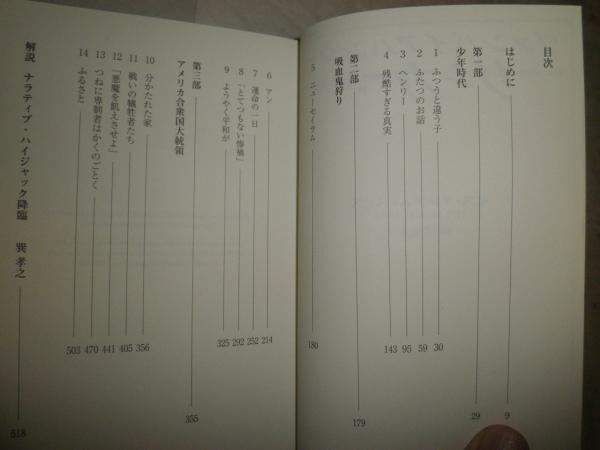 目次
はじめに 9
第一部
少年時代 29
1 ふつうと違う子 30
2 ふたつのお話 59
3 ヘンリー 95
4 残酷すぎる真実 143
第二部
吸血鬼狩り 179
5 ニューセイラム 180
6 アン 214
7 運命の一日 252
8 「とてつもない惨禍」 292
9 ようやく平和が 325
第三部
アメリカ合衆国大統領 355
10 分かたれた家 356
11 戦いの犠牲者たち 405
12 「悪魔を飢えさせよ」 441
13 つねに専制者はかくのごとく 470
14 ふるさと 503
解説 ナラティブ・ハイジャック降臨 巽 孝之 518